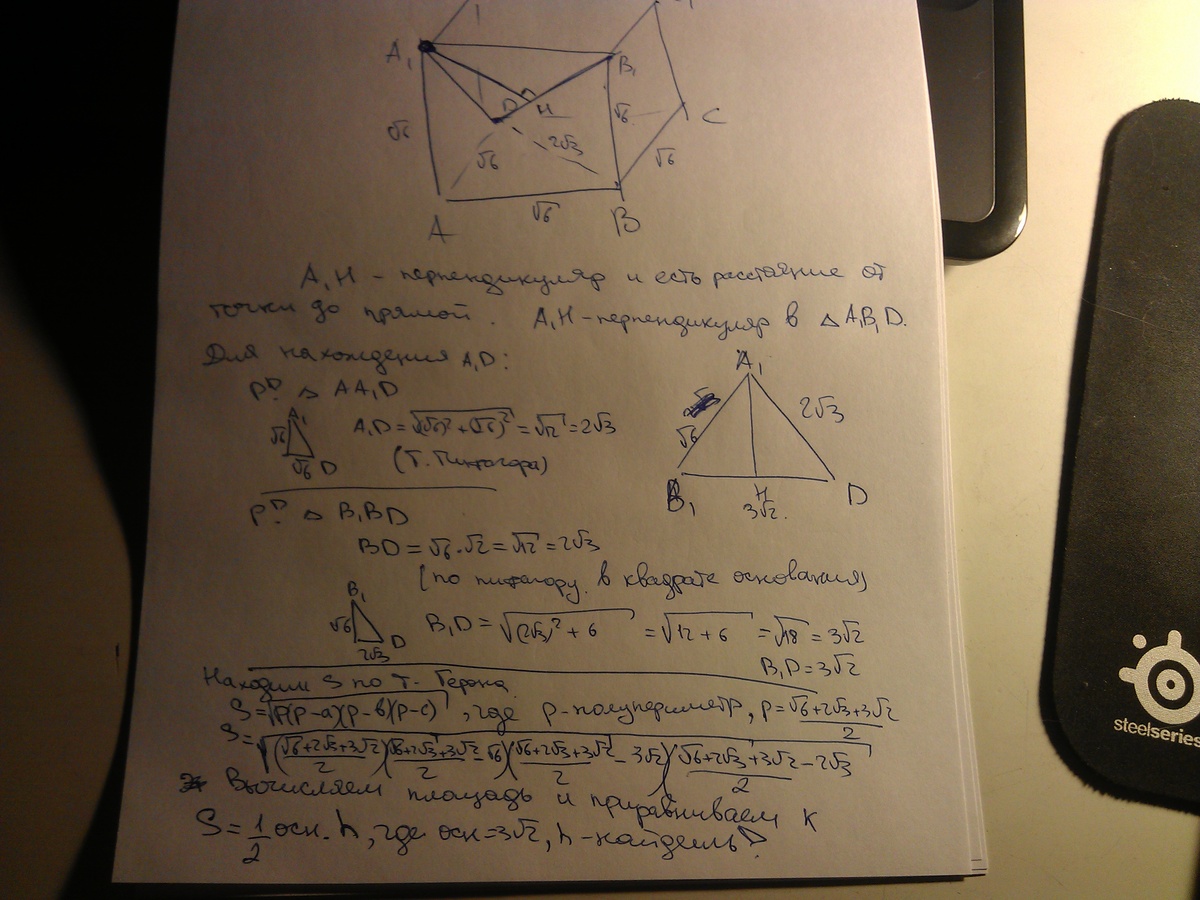 A₁
B₁
D
H
√6
√6
C
√6
2√3
√6
√6
A
B
A₁H - перпендикуляр и есть расстояние от
точки до прямой. A₁H - перпендикуляр в △ A₁B₁D.
Для нахождения A₁D:
△ AA₁D
A₁
√6
√6 D
A₁D = √((√6)² + (√6)²) = √12 = 2√3
(Т. Пифагора)
A₁
√6
2√3
B₁
H
D
3√2.
△ B₁BD
BD = √6 · √2 = √12 = 2√3
(по пифагору в квадрате основания)
B₁
√6
D
2√3
B₁D = √((2√3)² + 6) = √(12 + 6) = √18 = 3√2
B₁D = 3√2
Находим S по т. Герона
S = √(p(p-a)(p-b)(p-c)), где p - полупериметр, p = (√6+2√3+3√2)/2
S = √(((√6+2√3+3√2)/2)((√6+2√3+3√2)/2 - √6)((√6+2√3+3√2)/2 - 3√2)((√6+2√3+3√2)/2 - 2√3))
Вычисляем площадь и приравниваем к
S = 1/2 осн. h, где осн = 3√2, h - найдешь
steelseries